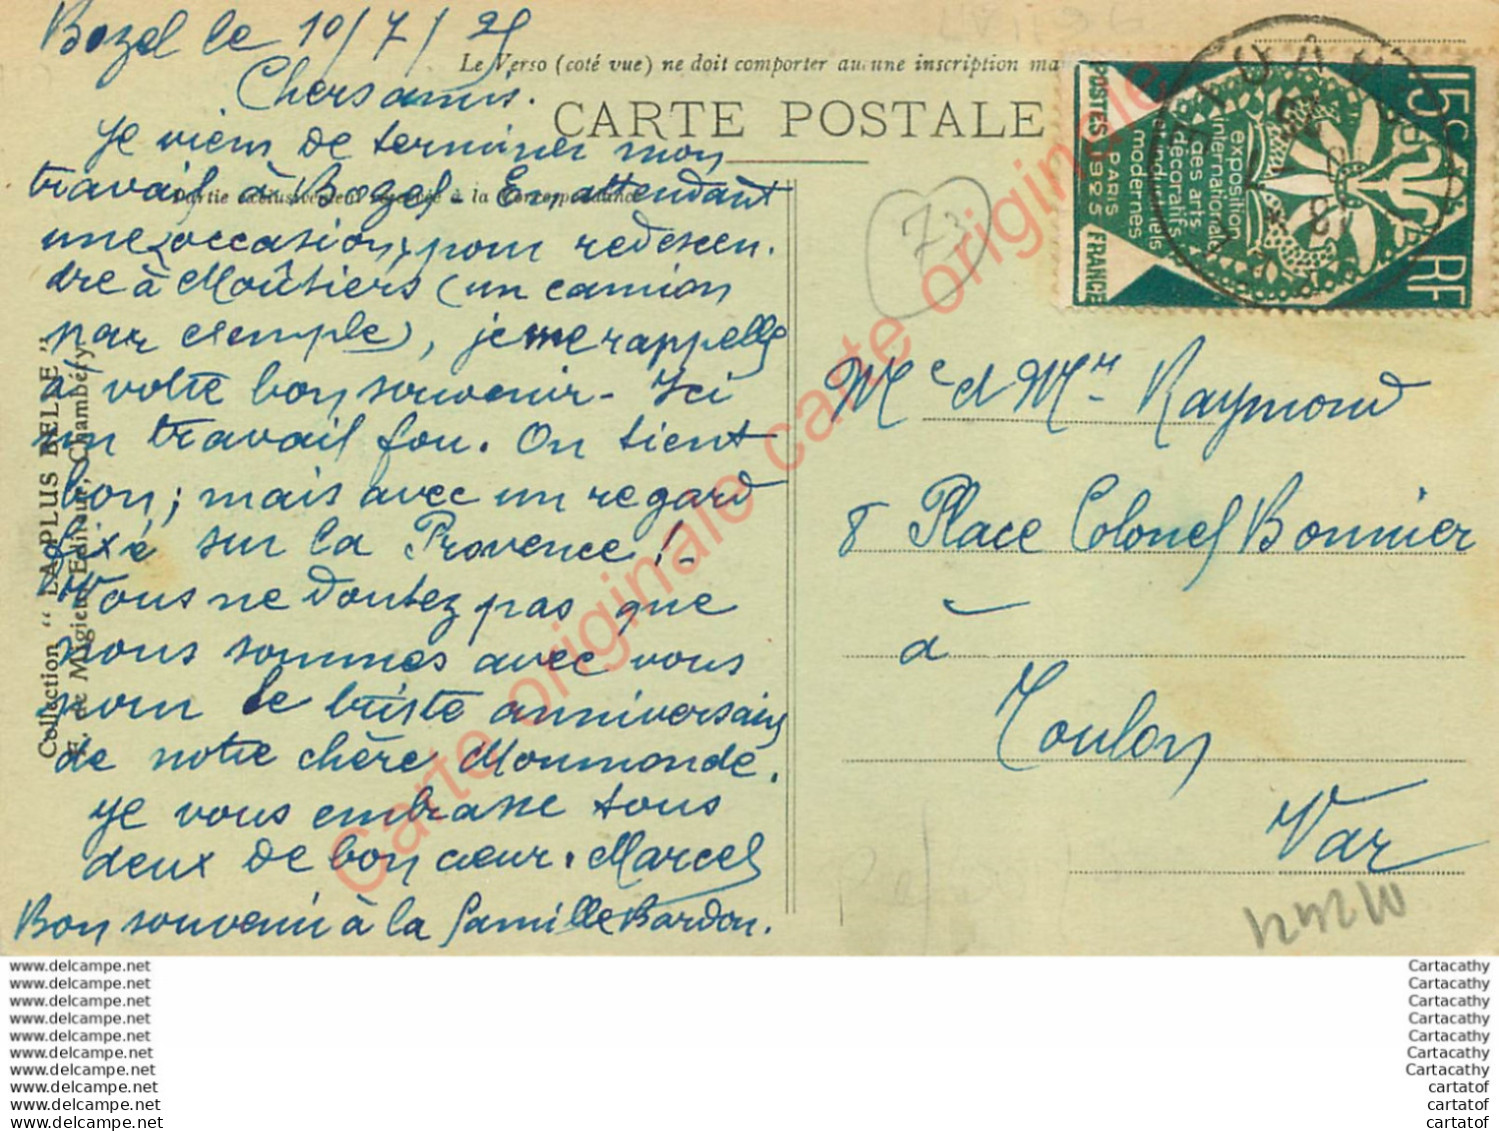 Bozel le 10/7/25
Chers amis.
Je viens de terminer mon
travail à Bozel. En attendant
une occasion, pour redescen-
dre à Moûtiers (un camion
par exemple), je me rappelle
à votre bon souvenir - Ici
un travail fou. On tient
bon; mais avec un regard
fixé sur la Provence!-
Vous ne doutez pas que
nous sommes avec vous
pour le triste anniversaire
de notre chère Moumonde.
Je vous embrasse tous
deux de bon cœur. Marcel
Bon souvenir à la famille Bardon.
Le Verso (coté vue) ne doit comporter aucune inscription ma
CARTE POSTALE
Partie exclusivement réservée à la Correspondance
Collection "LA PLUS BELLE"
E. de Mugieu, Editeur, Chambéry
73
POSTES 1925 FRANCE
PARIS
exposition
internationale
des arts
décoratifs
& industriels
modernes
15c
RF
Me et Mr Raymond
8 Place Colonel Bonnier
à
Toulon
Var
Carte originale carte originale carte originale
www.delcampe.net
www.delcampe.net
www.delcampe.net
www.delcampe.net
www.delcampe.net
www.delcampe.net
www.delcampe.net
www.delcampe.net
www.delcampe.net
www.delcampe.net
Cartacathy
Cartacathy
Cartacathy
Cartacathy
Cartacathy
Cartacathy
Cartacathy
cartatof
cartatof
cartatof